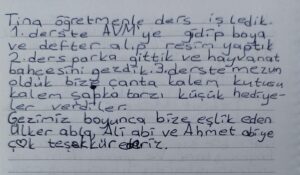 Tina öğretmenle ders işledik.
1. derste AVM'ye gidip boya
ve defter alıp resim yaptık
2. ders parka gittik ve hayvanat
bahçesini gezdik. 3. derste mezun
olduk bize çanta kalem kutusu
kalem şapka tarzı küçük hediye-
ler verdiler.
Gezimiz boyunca bize eşlik eden
Ülker abla, Ali abi ve Ahmet abiye
çok teşekkür ederiz.